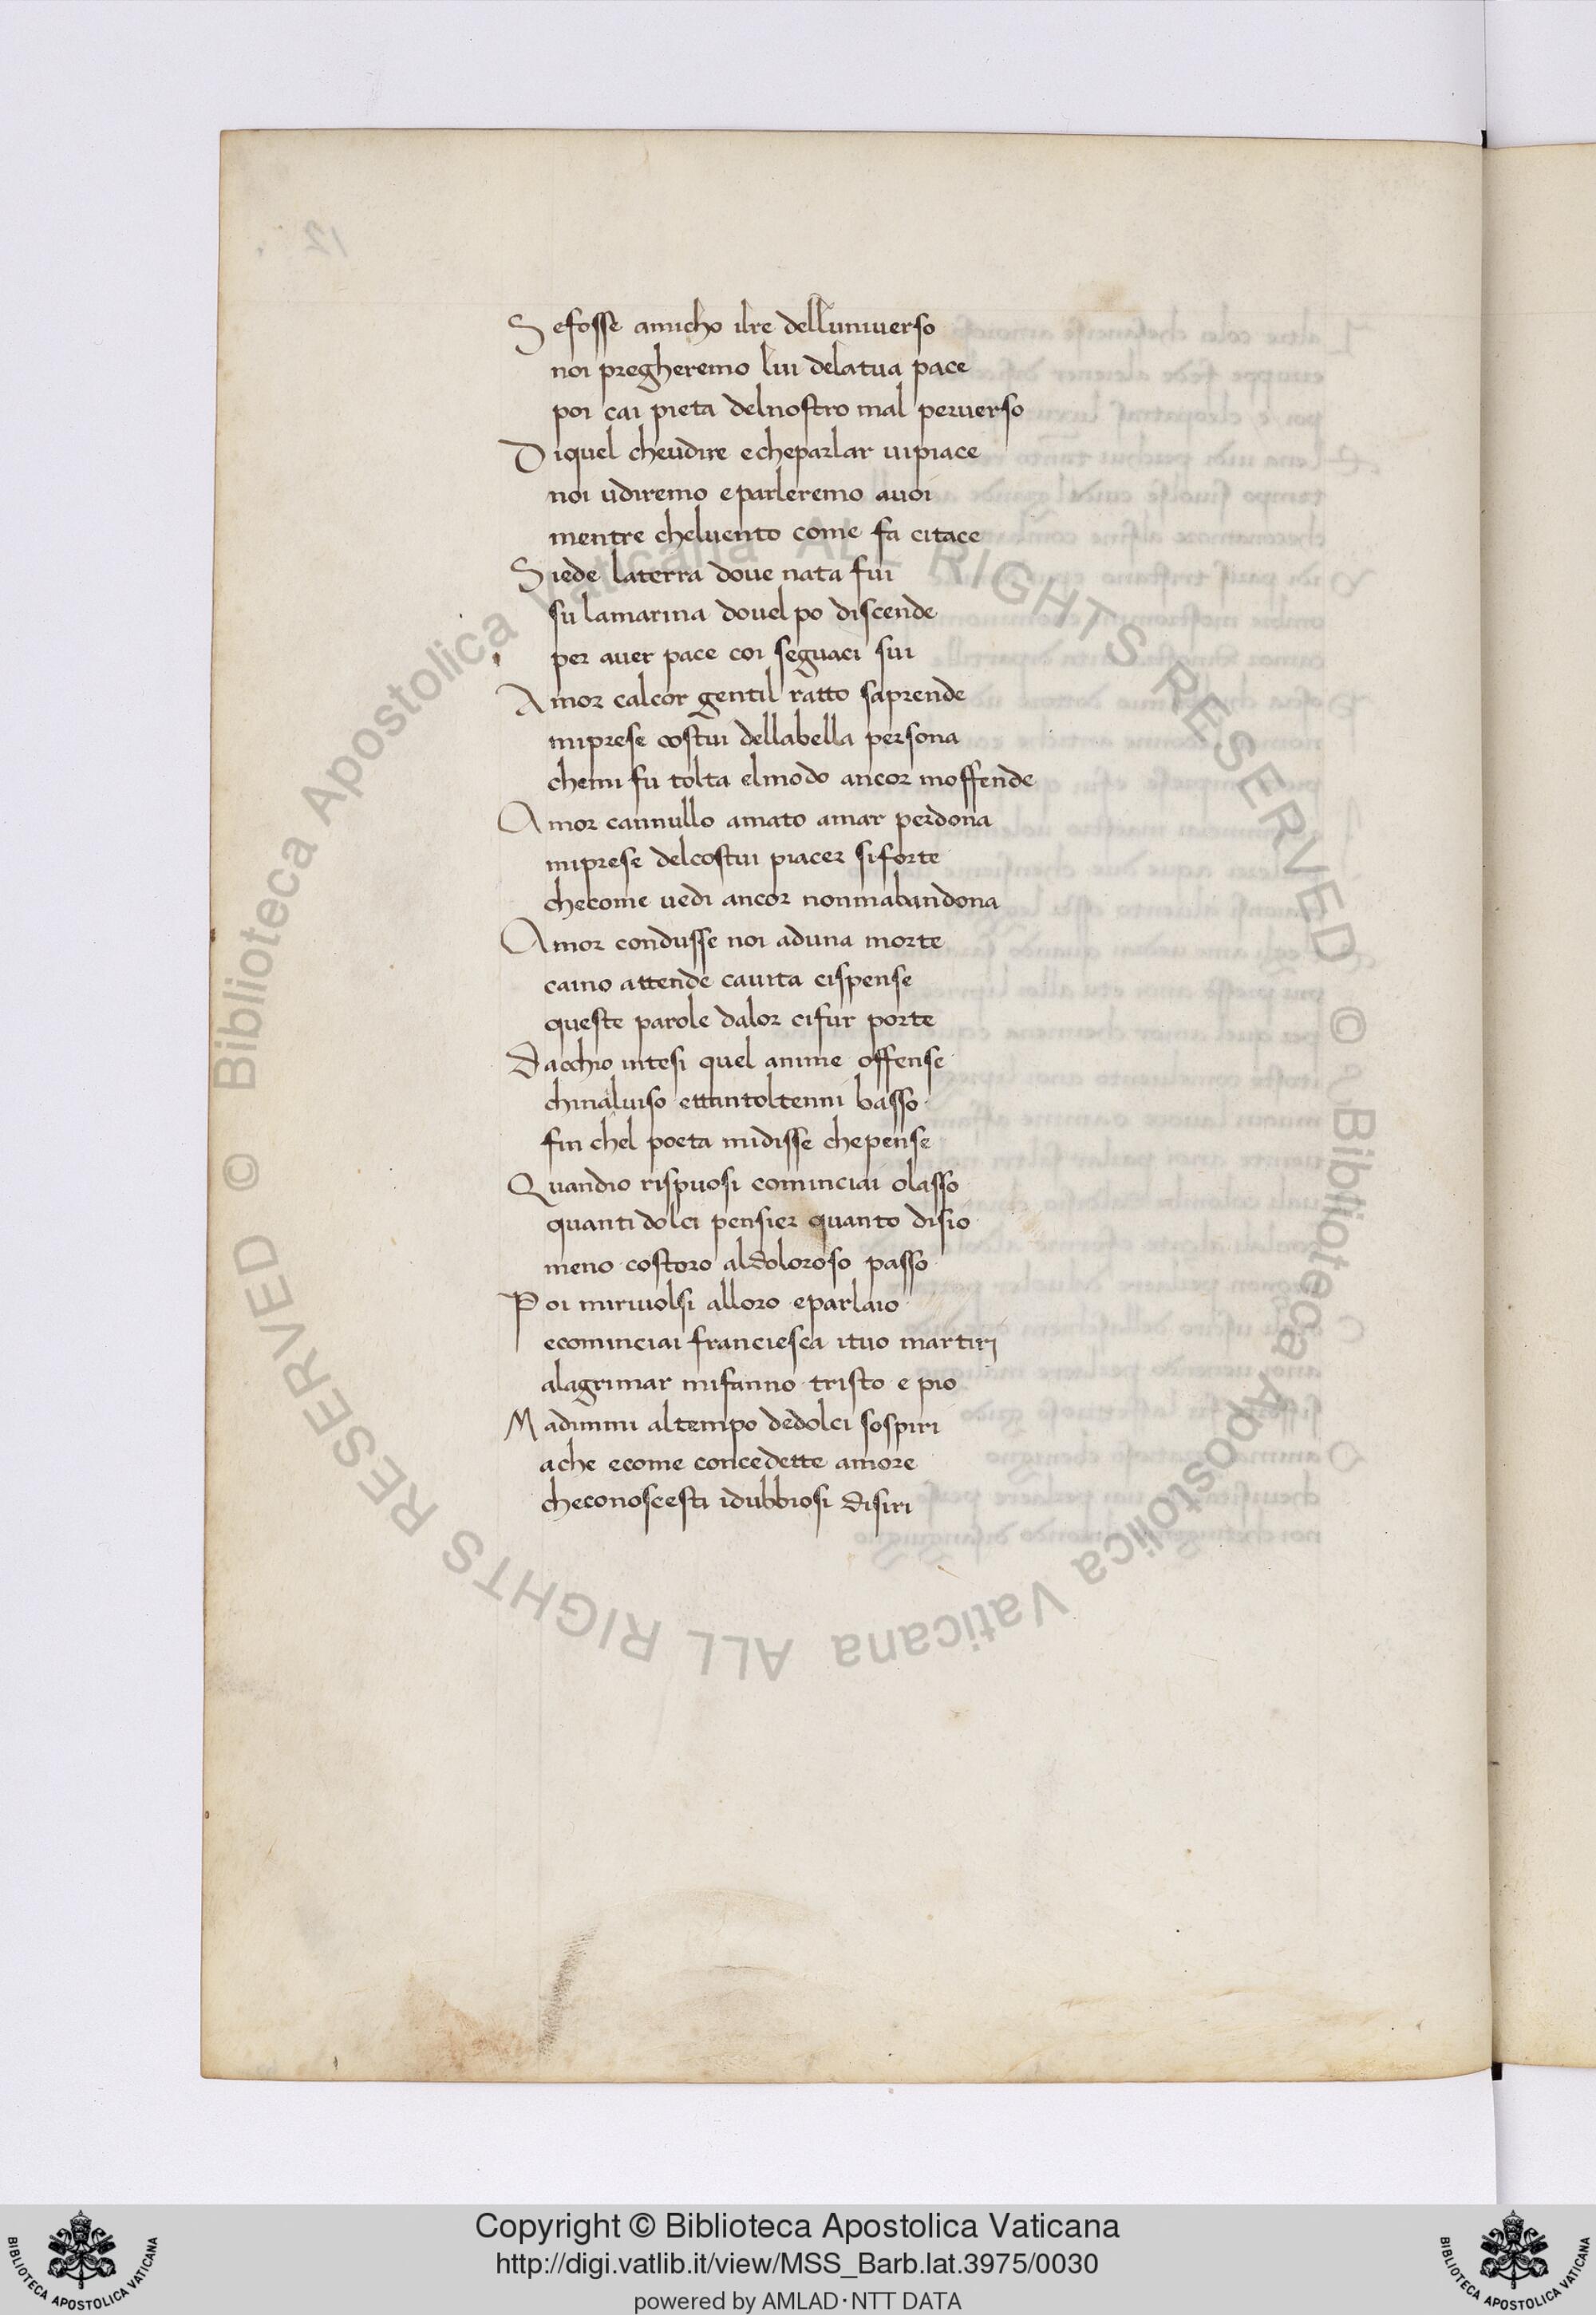 Sefosse amicho ilre delluniuerso
noi pregheremo lui delatua pace
poi cai pieta delnostro mal peruerso
Diquel cheudire echeparlar uipiace
noi udiremo eparleremo auoi
mentre cheluento come fa citace
Siede laterra doue nata fui
su lamarina douel po discende
per auer pace coi seguaci sui
Amor calcor gentil ratto saprende
miprese costui dellabella persona
chemi fu tolta elmodo ancor moffende
Amor cannullo amato amar perdona
miprese delcostui piacer siforte
checome uedi ancor nonmabandona
Amor condusse noi aduna morte
caino attende cauita cispense
queste parole dalor cifur porte
Dacchio intesi quel anime offense
chinaluiso ettintoltenni basso
fin chel poeta midisse chepense
Quandio rispuosi cominciai olasso
quanti dolci pensier quanto disio
meno costoro aldoloroso passo
Poi miriuolsi alloro eparlaio
ecominciai franciesca ituo martirj
alagrimar mifanno tristo e pio
Madimmi altempo dedolci sospiri
ache ecome concedette amore
checonoscesti idubbiosi disiri
© Biblioteca Apostolica Vaticana ALL RIGHTS RESERVED
© Biblioteca Apostolica Vaticana ALL RIGHTS RESERVED
Copyright © Biblioteca Apostolica Vaticana
http://digi.vatlib.it/view/MSS_Barb.lat.3975/0030
powered by AMLAD·NTT DATA
BIBLIOTECA APOSTOLICA VATICANA
BIBLIOTECA APOSTOLICA VATICANA